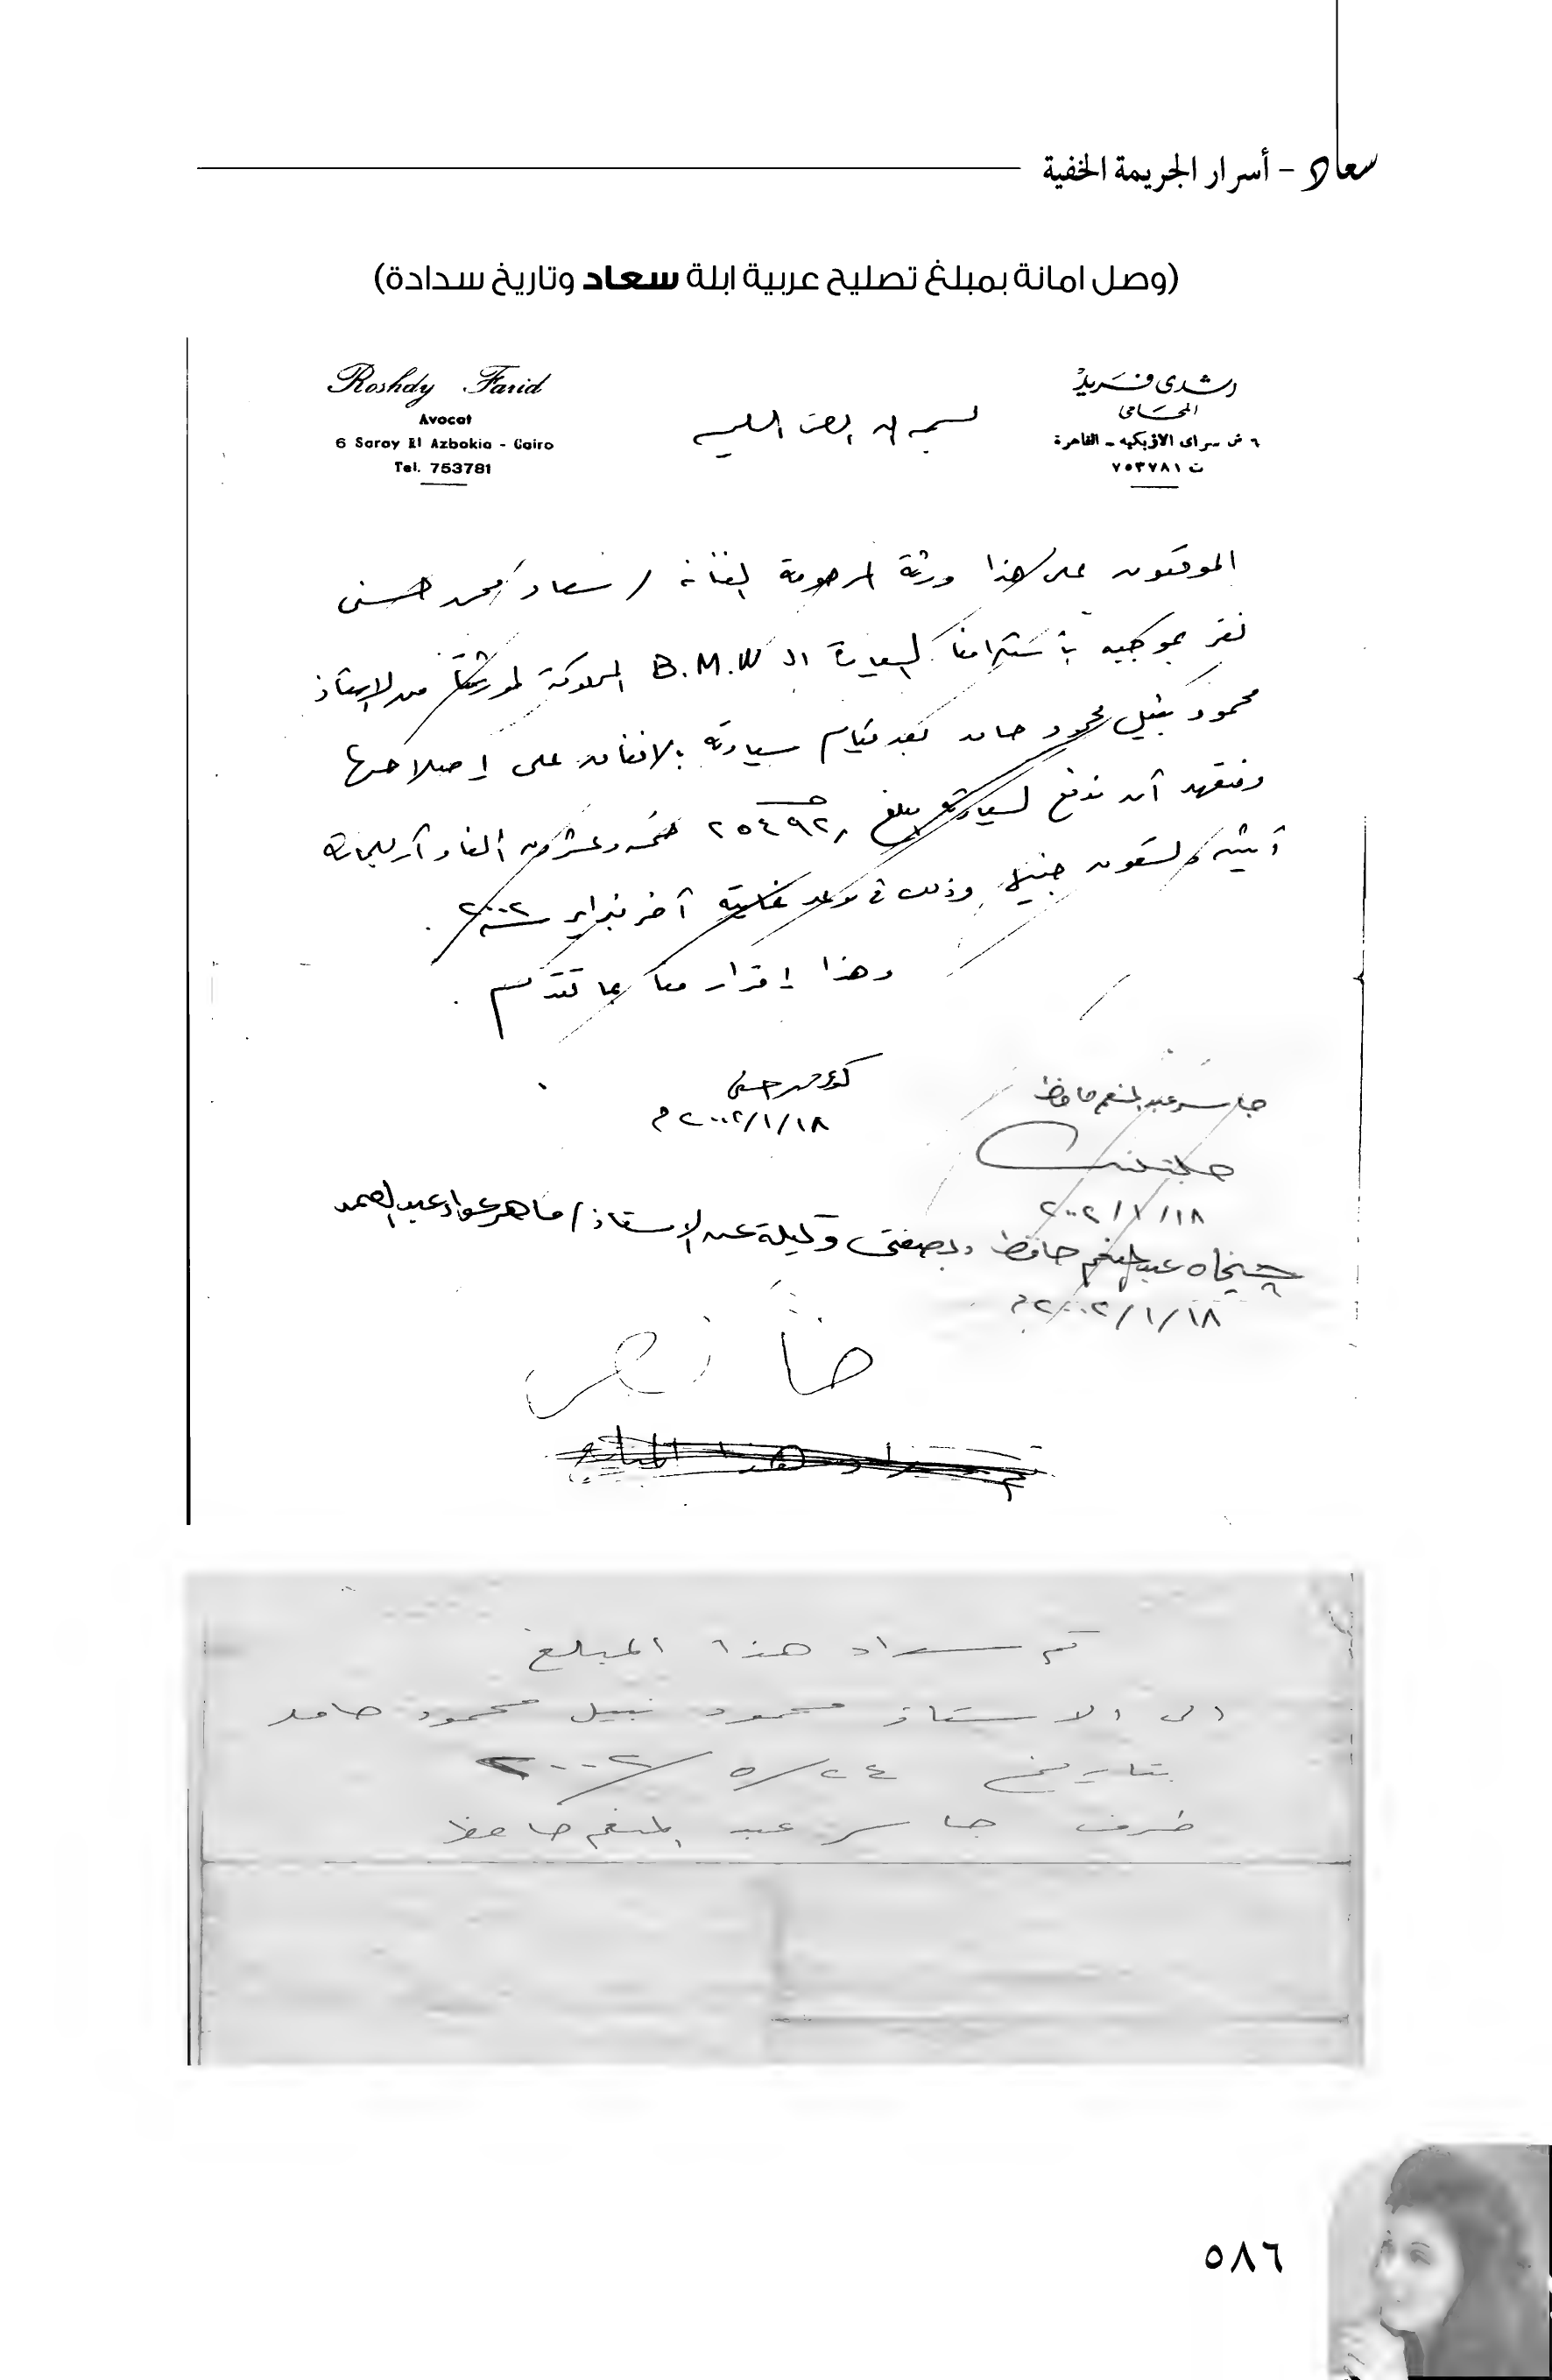 سعاد - أسرار الجريمة الخفية
(وصل امانة بمبلغ تصليح عربية ابلة سعاد وتاريخ سدادة)
Roshdy Farid
Avocat
6 Saray El Azbakia - Cairo
Tel. 753781
رشدى فريد
المحامى
٦ ش سراى الازبكيه - القاهرة
ت ٧٥٣٧٨١
بسم الله الرحمن الرحيم
الموقعون على هذا ورثة المرحومة الفنانة / سعاد محمد حسنى
نقر بموجبه بأستلامنا السيارة الـ B.M.W المملوكة لمورثتنا من الاستاذ
محمود نبيل محمود حامد بعد قيام سيادته بالانفاق على إصلاحها
ونتعهد أن ندفع لسيادته مبلغ ٢٥٤٩٢ خمسه وعشرون ألفا وأربعمائة
أثنين وتسعون جنيها وذلك في موعد غايته آخر فبراير سنة ٢٠٠٢ .
وهذا إقرار منا بما تقدم .
جاسر عبد المنعم حافظ
٢٠٠٢/١/١٨
حسنى
٢٠٠٢/١/١٨ م
جيهان عبد المنعم حافظ وبصفتى وكيلة عن الاستاذ / ماهر عواد عبد الصمد
٢٠٠٢/١/١٨ م
تم سداد هذا المبلغ
تم سداد هذا المبلغ
الى الاستاذ محمود نبيل محمود حامد
بتاريخ ٢٤/٥/٢٠٠٢
طرف جاسر عبد المنعم حافظ
٥٨٦